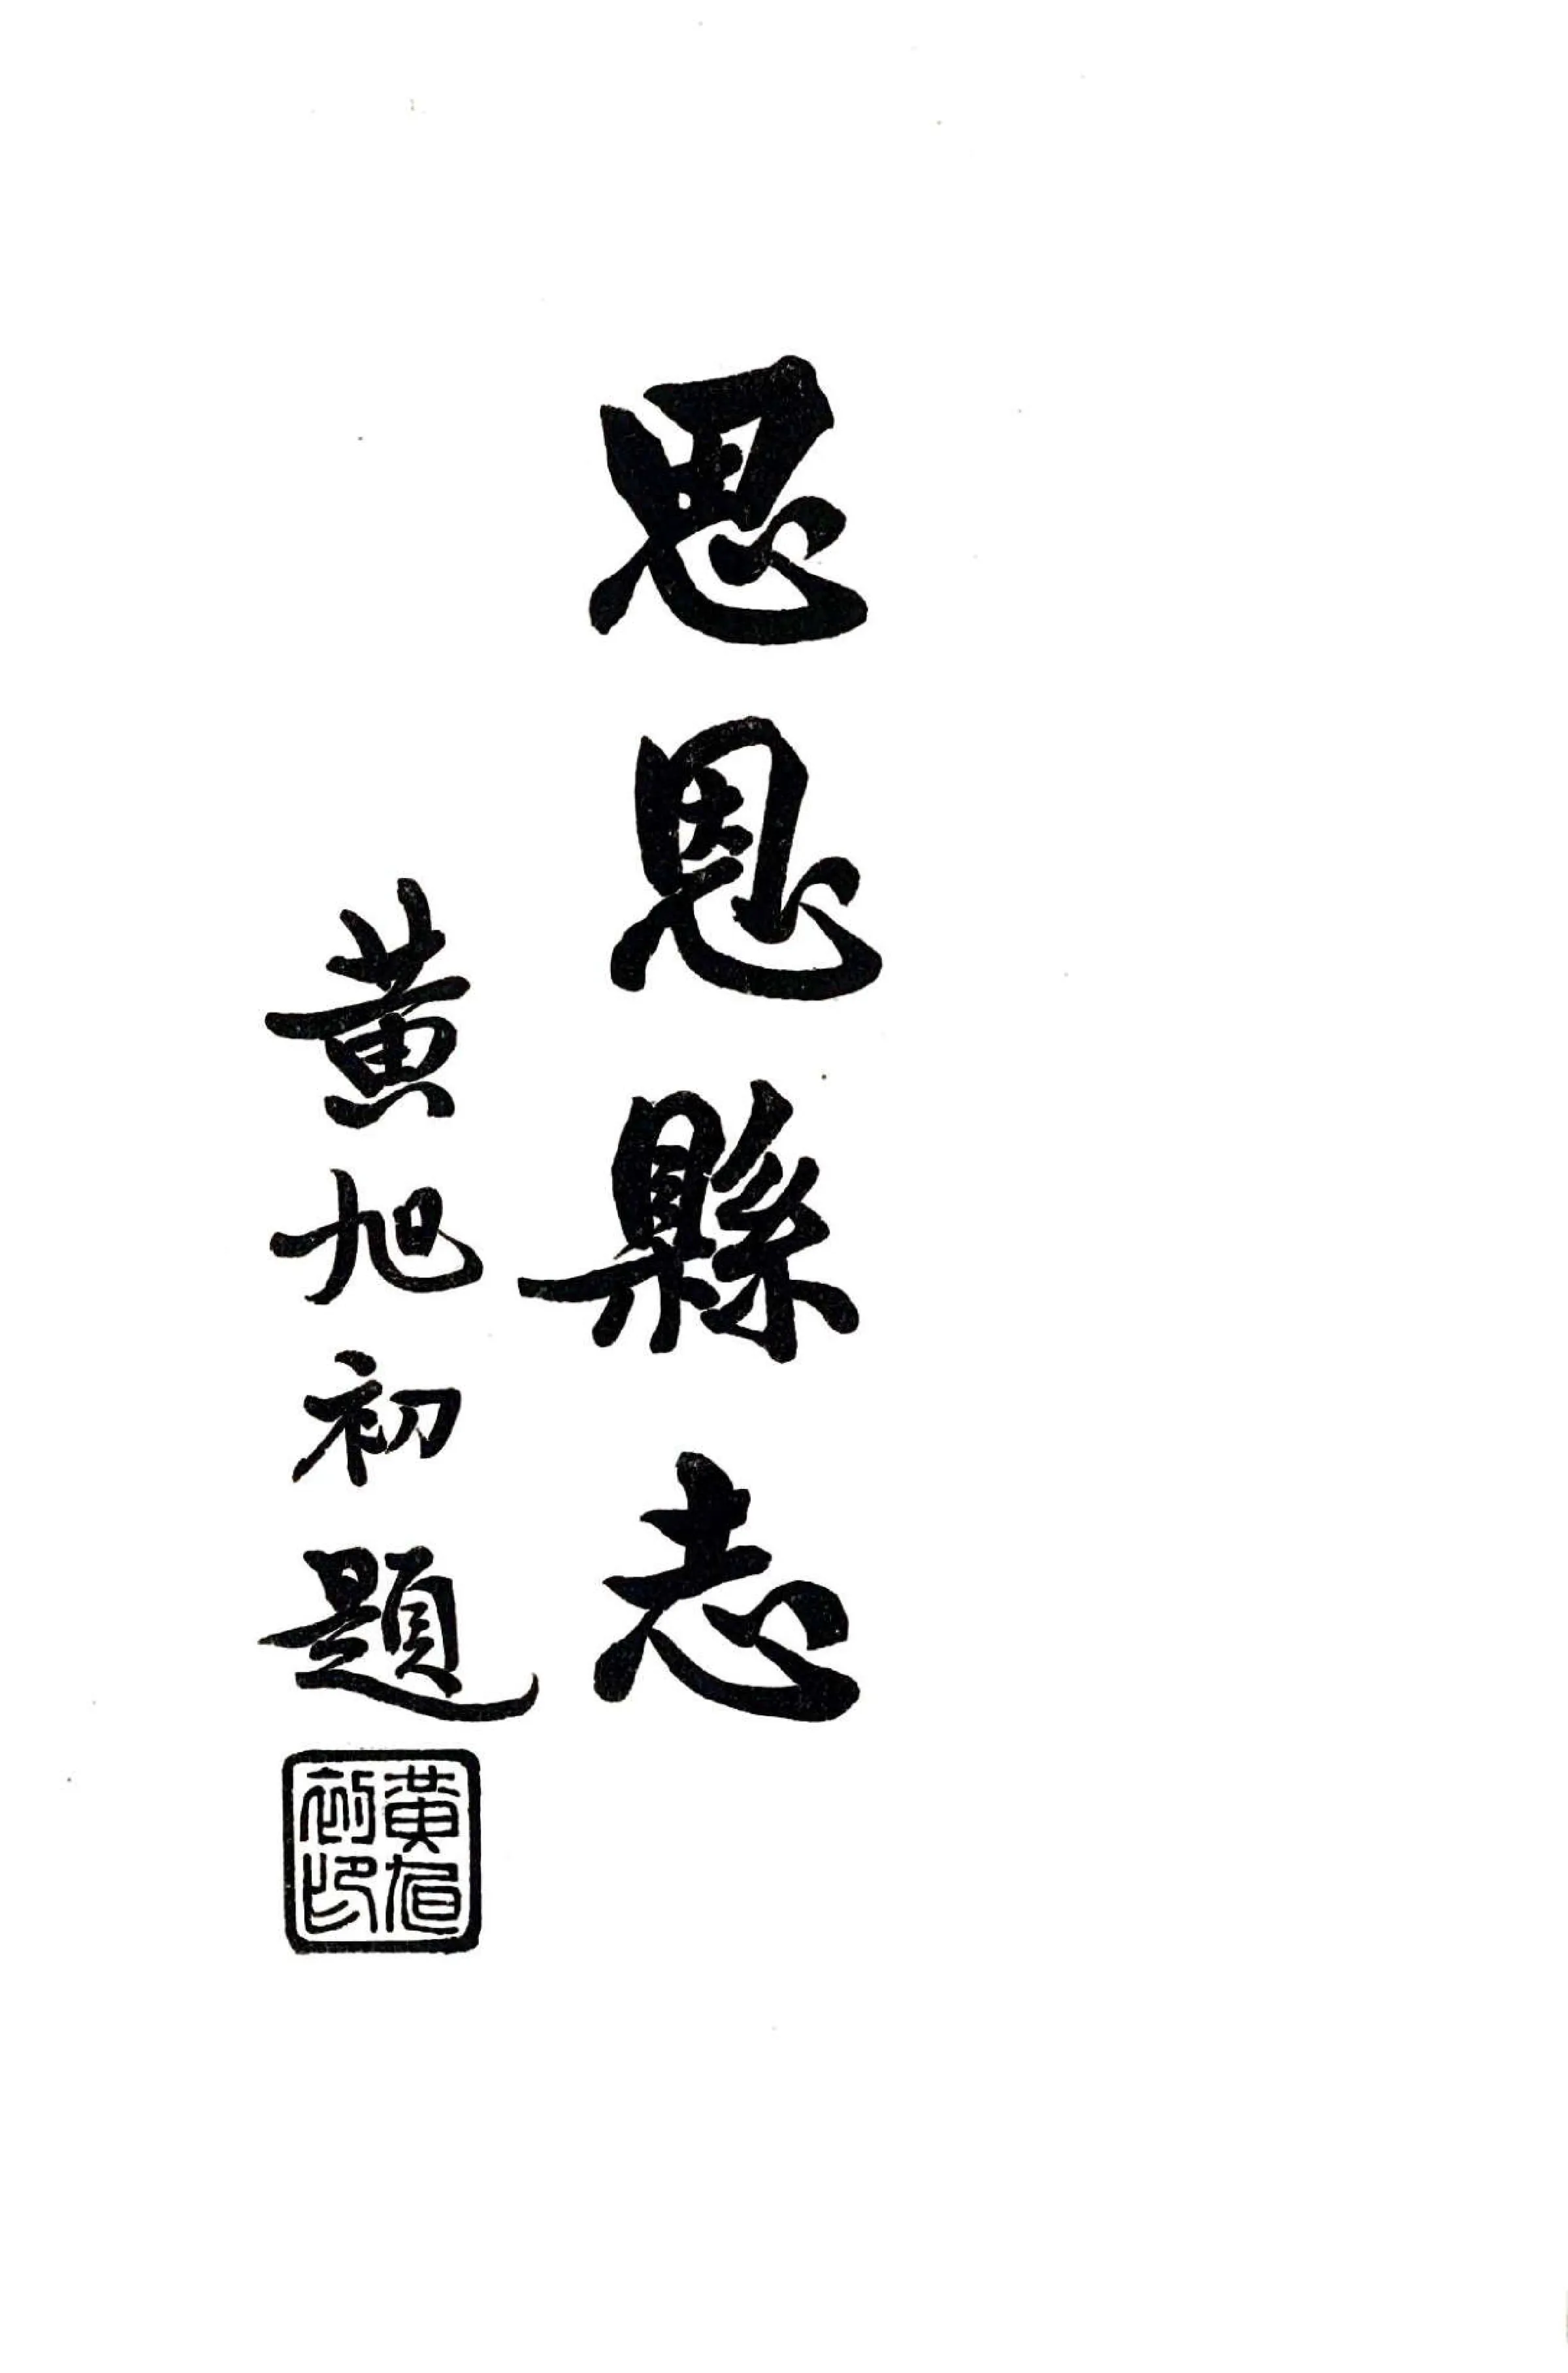 思恩縣志
黃旭初題
黃旭初印